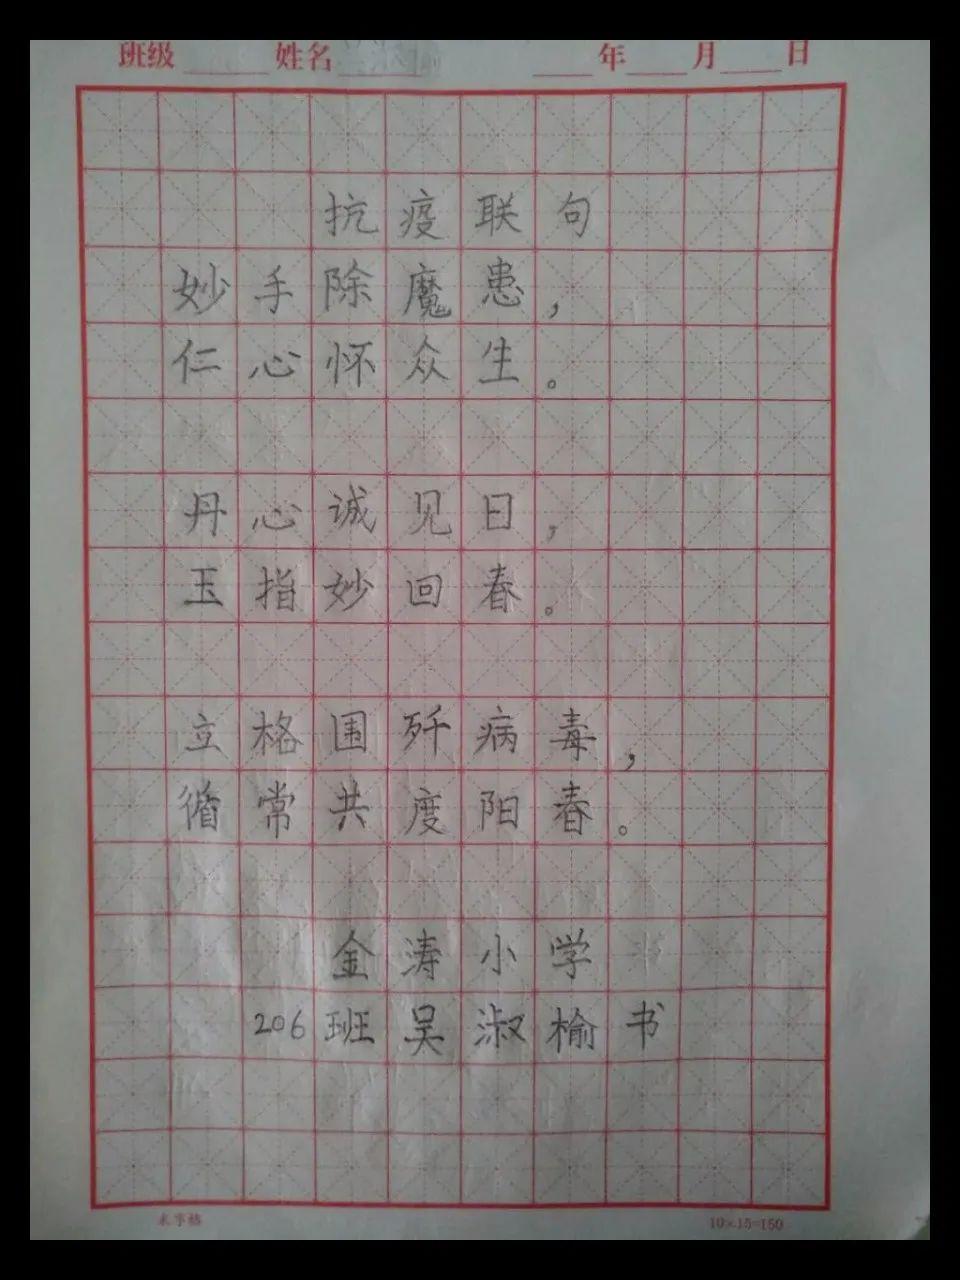 班级 姓名 年 月 日
抗疫联句
妙手除魔患，
仁心怀众生。
丹心诚见日，
玉指妙回春。
立格围歼病毒，
循常共度阳春。
金涛小学
206班吴淑榆书
米字格 10×15=150